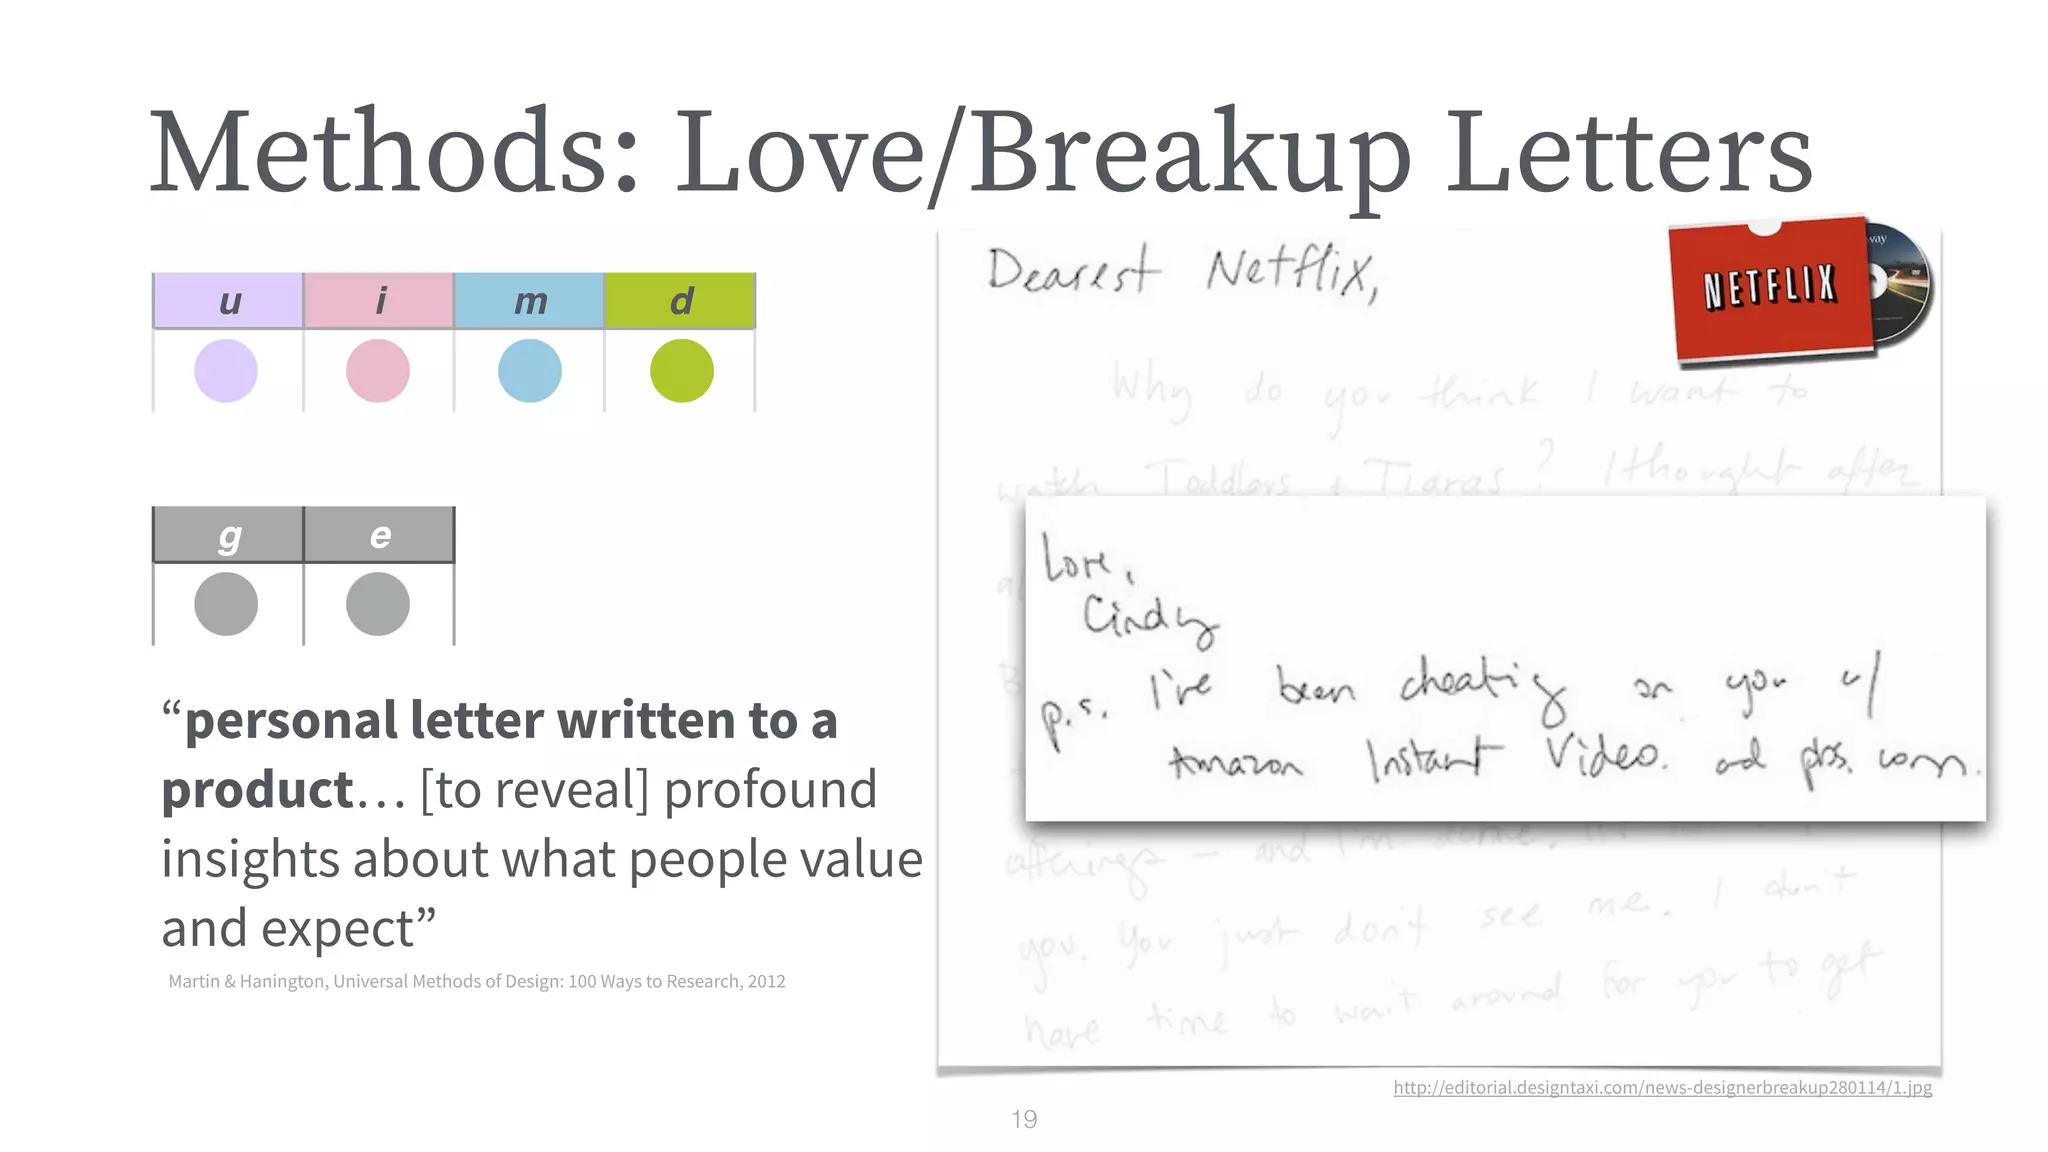 Methods: Love/Breakup Letters
u i m d
g e
“personal letter written to a
product… [to reveal] profound
insights about what people value
and expect”
Martin & Hanington, Universal Methods of Design: 100 Ways to Research, 2012
Dearest Netflix,
NETFLIX
way
Why do you think I want to
watch Toddlers + Tiaras? I thought after
Love,
Cindy
p.s. I've been cheating on you w/
Amazon Instant Video. and pbs. com.
offerings — and I'm done. It's
you. You just don't see me. I don't
have time to wait around for you to get
http://editorial.designtaxi.com/news-designerbreakup280114/1.jpg
19